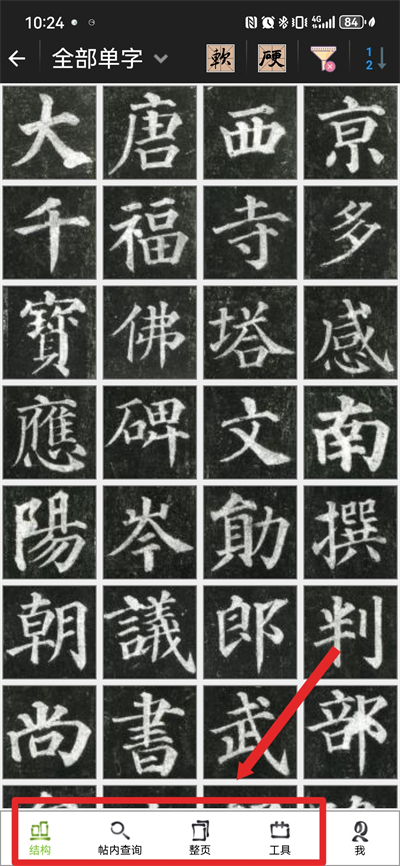 10:24 4G 84
全部单字 軟 硬 1 2
大 唐 西 亰
千 福 寺 多
寶 佛 塔 感
應 碑 文 南
陽 岑 勛 撰
朝 議 郎 判
尚 書 武 部
结构 帖内查询 整页 工具 我